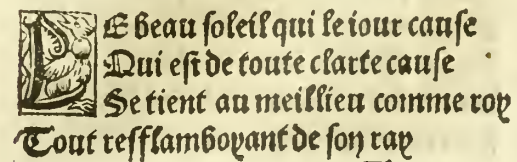 LE beau soleil qui le iour cause
Qui est de toute clarte cause
Se tient au meillieu comme roy
Tout resflamboyant de son ray